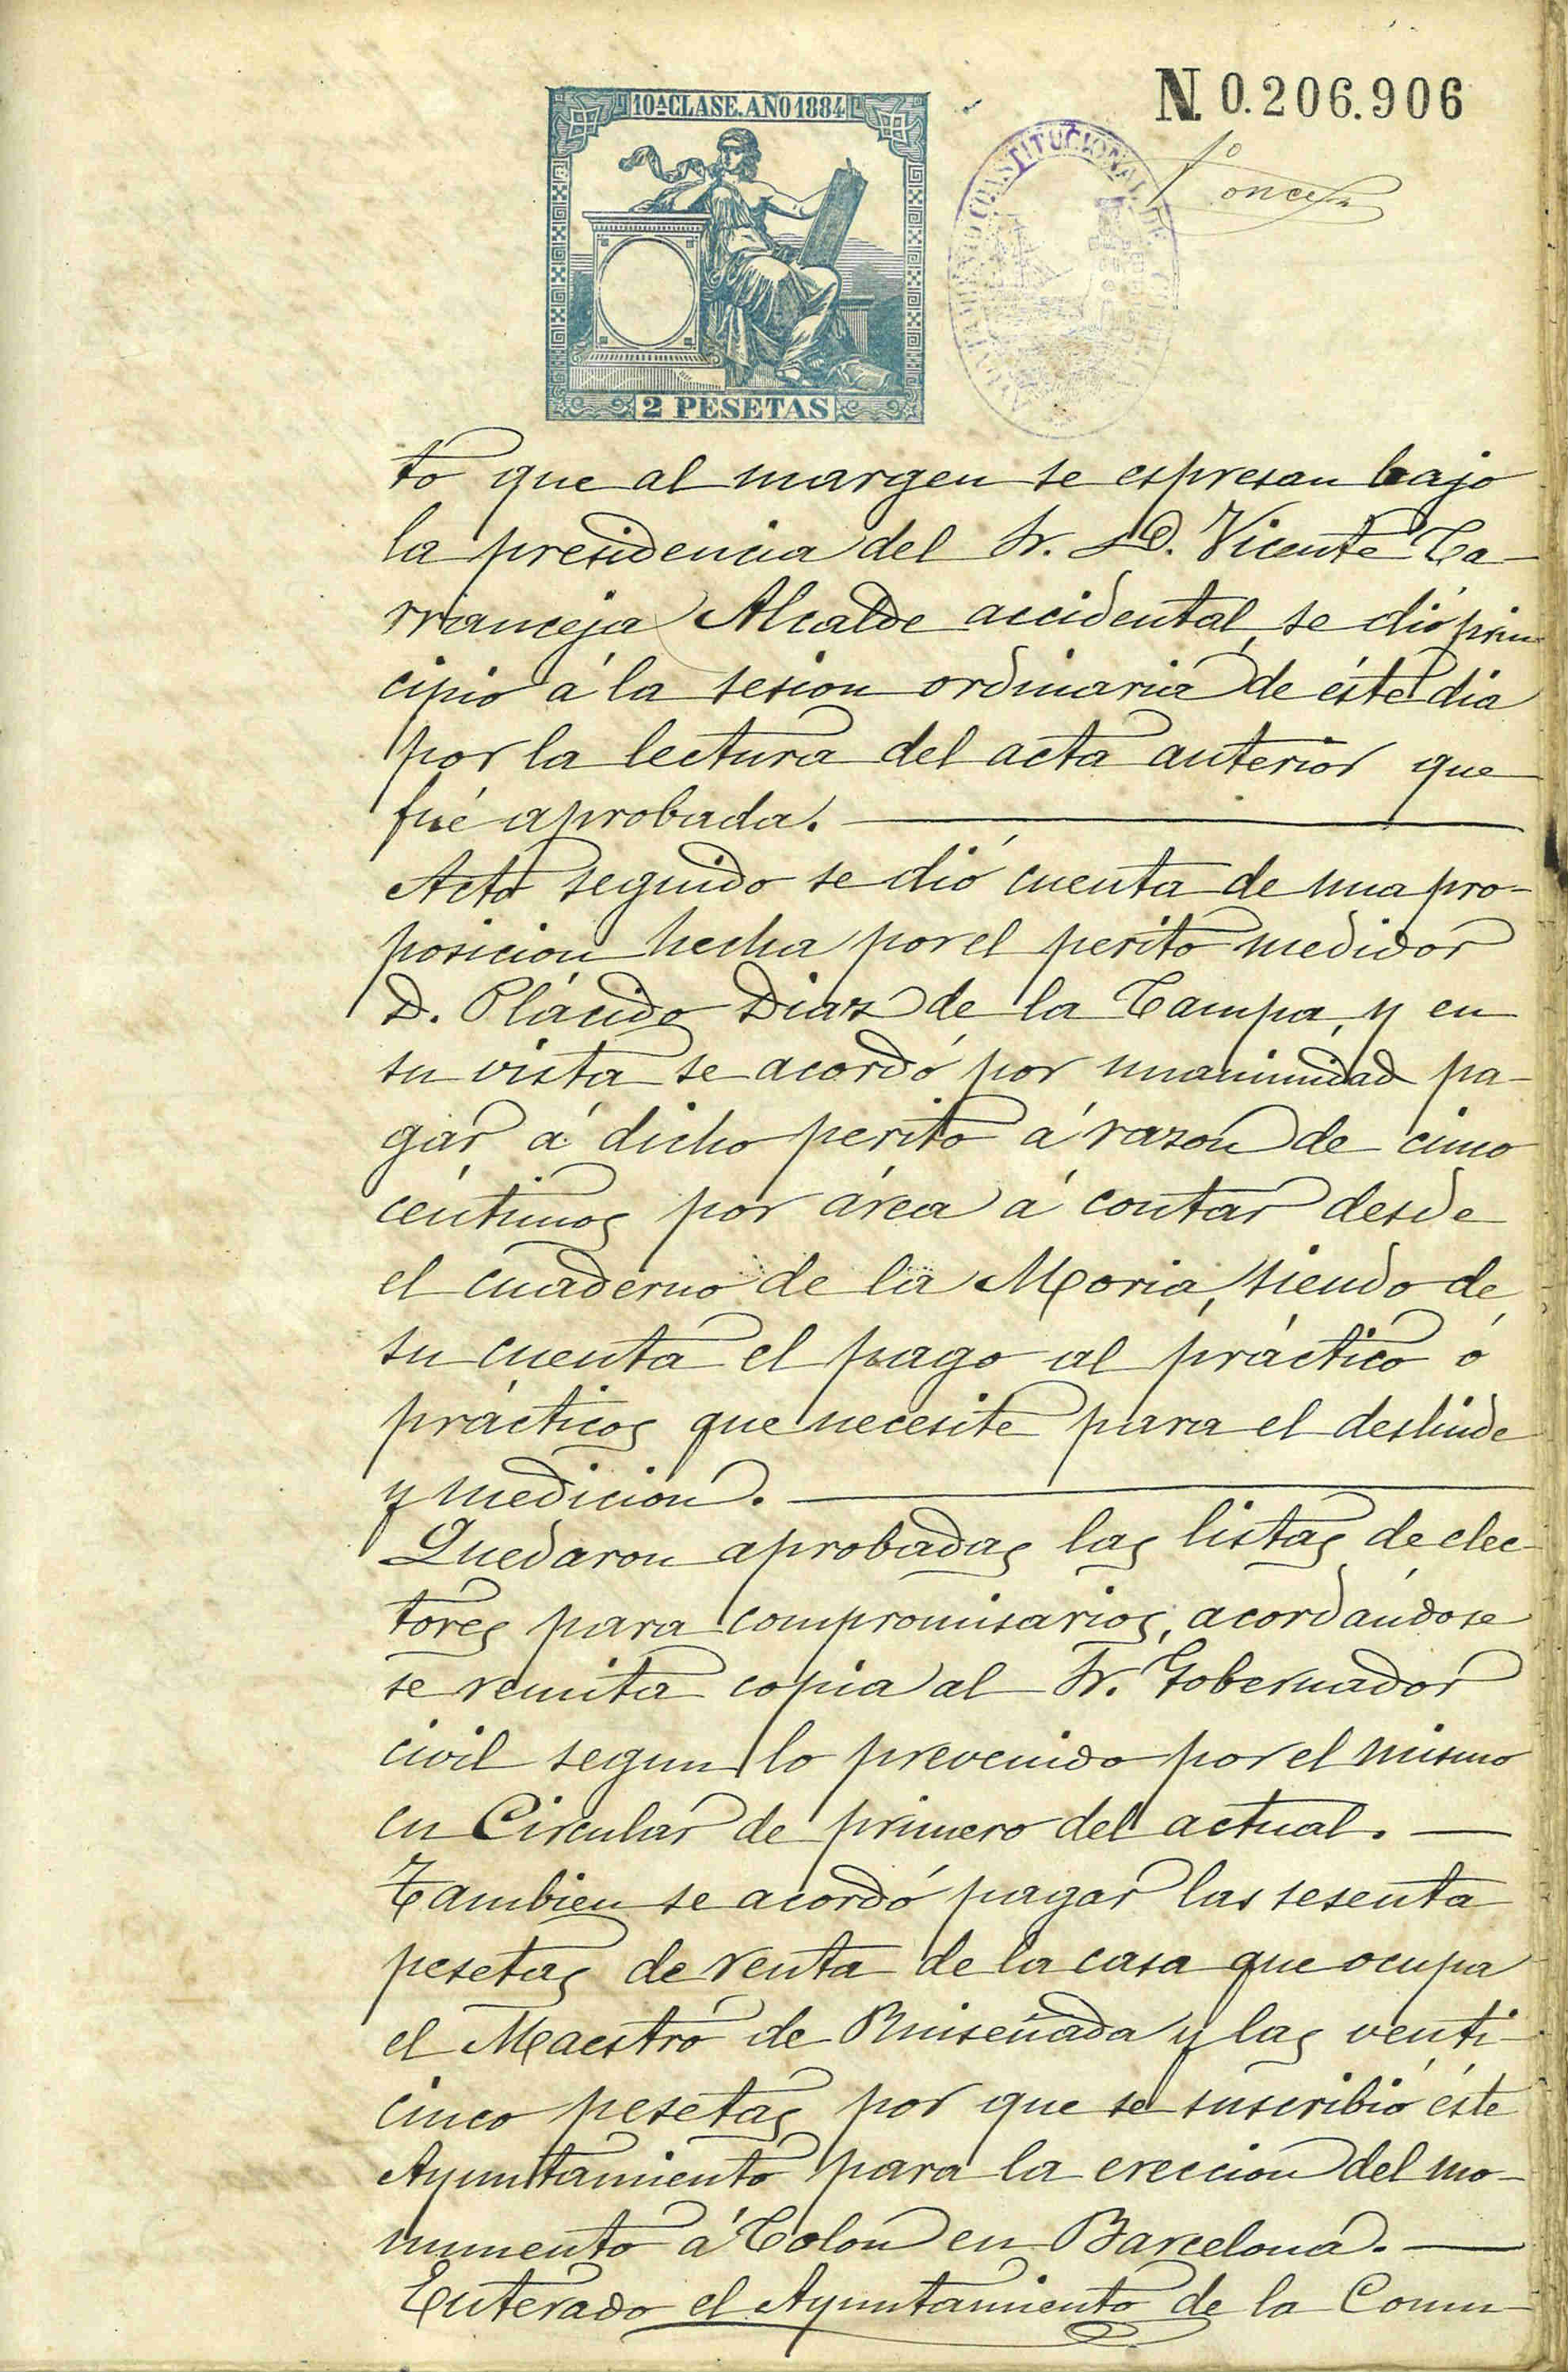 N. 0.206.906
10ª CLASE. AÑO 1884
CONSTITUCIONAL DE
fº once
2 PESETAS
to que al margen se espresan bajo
la presidencia del Sr. D. Vicente Ca-
rranceja Alcalde accidental, se dió prin-
cipio á la sesion ordinaria de éste dia
por la lectura del acta anterior que
fué aprobada.
Acto seguido se dió cuenta de una pro-
posicion hecha por el perito medidor
D. Plácido Diaz de la Campa, y en
su vista se acordó por unanimidad pa-
gar á dicho perito á razon de cinco
céntimos por área á contar desde
el cuaderno de la Moria, siendo de
su cuenta el pago al práctico ó
prácticos que necesite para el deslinde
y medicion.
Quedaron aprobadas las listas de elec-
tores para compromisarios, acordándose
se remita copia al Sr. Gobernador
civil segun lo prevenido por el mismo
en Circular de primero del actual.
Tambien se acordó pagar las sesenta
pesetas de renta de la casa que ocupa
el Maestro de Ruiseñada y las venti-
cinco pesetas por que se suscribió éste
Ayuntamiento para la ereccion del mo-
numento á Colon en Barcelona.
Enterado el Ayuntamiento de la Comu-